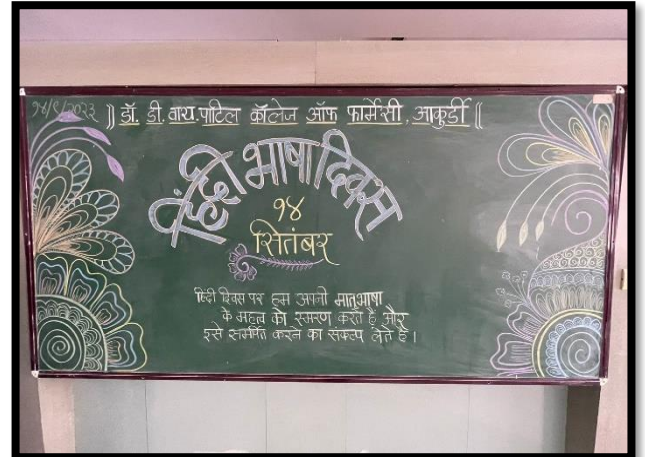 १४/९/२०२३
|| डॉ. डी. वाय. पाटिल कॉलेज ऑफ फार्मसी, आकुर्डी ||
हिंदी भाषा दिवस
१४
सितंबर
हिंदी दिवस पर हम अपनी मातृभाषा
के महत्व को स्मरण करते हैं और
इसे समर्पित करने का संकल्प लेते है।